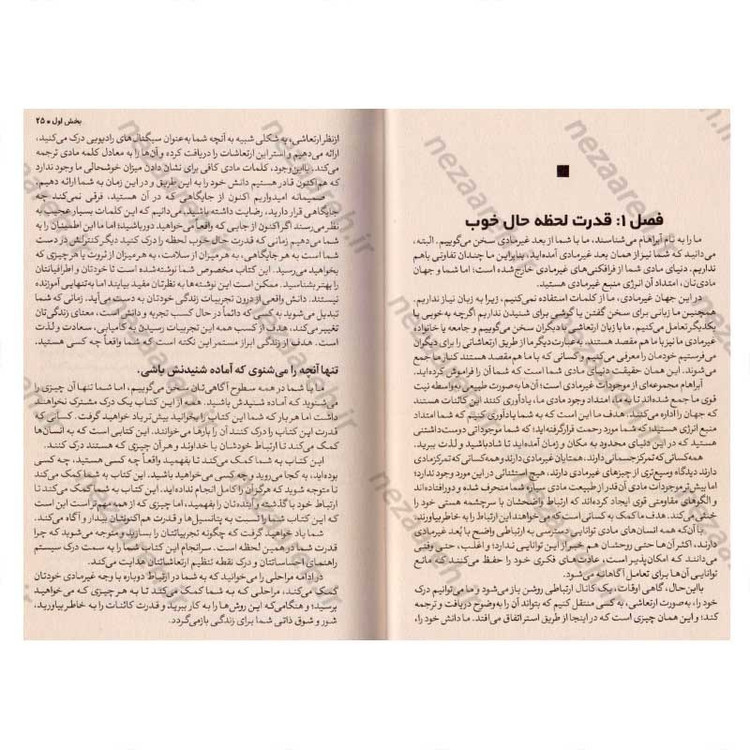 فصل ۱: قدرت لحظه حال خوب
ما را به نام آبراهام می‌شناسند، ما با شما از بعد غیرمادی سخن می‌گوییم. البته،
می‌دانید که شما نیز از همان بعد غیرمادی آمده‌اید. بنابراین ما چندان تفاوتی باهم
نداریم. دنیای مادی شما از فرافکنی‌های غیرمادی خارج‌شده است؛ اما شما و جهان
مادی‌تان، امتداد آن انرژی منبع غیرمادی هستید.
در این جهان غیرمادی، ما از کلمات استفاده نمی‌کنیم، زیرا به زبان نیاز نداریم.
همچنین ما زبانی برای سخن گفتن یا گوشی برای شنیدن نداریم اگرچه به‌خوبی با
یکدیگر تعامل می‌کنیم. ما با زبان ارتعاشی با دیگران سخن می‌گوییم و جامعه یا خانواده
غیرمادی ما نیز با ما هم مقصد هستند. به‌عبارت‌دیگر ما از طریق ارتعاشاتی را برای دیگران
می‌فرستیم خودمان را معرفی می‌کنیم و کسانی که با ما هم مقصد هستند کنار ما جمع
می‌شوند. این همان حقیقت دنیای مادی شما است که شما آن را فراموش کرده‌اید.
آبراهام مجموعه‌ای از موجودات غیرمادی است؛ آن‌ها به‌صورت طبیعی به‌واسطه نیت
قوی ما جمع شده‌اند تا به ما، امتداد وجود مادی ما، یادآوری کنند این کائنات هستند
که جهان را اداره می‌کنند. هدف ما این است که به شما یادآوری کنیم که شما امتداد
منبع انرژی هستید؛ که شما مورد رحمت قرارگرفته‌اید؛ که شما موجوداتی دوست‌داشتنی
هستید که در این دنیای محدود به مکان و زمان آمده‌اید تا شاد باشید و لذت ببرید.
همه کسانی که تمرکز جسمانی دارند، همتایان غیرمادی دارند. همه کسانی که تمرکز مادی
دارند دیدگاه وسیع‌تری از چیزهای غیرمادی دارند، هیچ استثنائی در این مورد وجود ندارد؛
اما بیش‌تر موجودات مادی آن‌قدر از طبیعت مادی سیاره شما منحرف شده و دور افتاده‌اند
و الگوهای مقاومتی قوی ایجاد کرده‌اند که ارتباط واضحشان با سرچشمه هستی خود را
خنثی می‌کند. هدف ما کمک به کسانی است که می‌خواهند این ارتباط را به خاطر بیاورند.
با آن‌که همه انسان‌های مادی توانایی دسترسی به ارتباطی واضح با بُعد غیرمادی
دارند، اکثر آن‌ها حتی روحشان هم خبر از این توانایی ندارد؛ و اغلب، حتی وقتی
می‌دانند که امکان‌پذیر است، عادت‌های فکری خود را حفظ می‌کنند که مانع
توانایی آن‌ها برای تعامل آگاهانه می‌شود.
بااین‌حال، گاهی اوقات، یک کانال ارتباطی روشن باز می‌شود و ما می‌توانیم درک
خود را، به‌صورت ارتعاشی، به کسی منتقل کنیم که بتواند آن را به‌وضوح دریافت و ترجمه
کند؛ و این همان چیزی است که در اینجا از طریق استر اتفاق می‌افتد. ما دانش خود را،
بخش اول ● ۲۵
ازنظر ارتعاشی، به شکلی شبیه به آنچه شما به‌عنوان سیگنال‌های رادیویی درک می‌کنید،
ارائه می‌دهیم و استر این ارتعاشات را دریافت کرده و آن‌ها را به معادل کلمه مادی ترجمه
می‌کند. بااین‌وجود، کلمات مادی کافی برای نشان دادن میزان خوشحالی ما وجود ندارد
که هم‌اکنون قادر هستیم دانش خود را به این طریق و در این زمان به شما ارائه دهیم.
صمیمانه امیدواریم اکنون از جایگاهی که در آن هستید، فرقی نمی‌کند چه
جایگاهی قرار دارید، رضایت داشته باشید. می‌دانیم که این کلمات بسیار عجیب به
نظر می‌رسند اگر اکنون از جایی که واقعاً می‌خواهید دور باشید؛ اما با این اطمینان را به
شما می‌دهیم زمانی که قدرت حال خوب لحظه را درک کنید دیگر کنترلش در دست
شما است به هر جایگاهی، به هر میزان از سلامت، به هر میزان از ثروت یا هر چیزی که
بخواهید می‌رسید. این کتاب مخصوص شما نوشته‌شده است تا خودتان و اطرافیانتان
را بهتر بشناسید. ممکن است این نوشته‌ها به نظرتان مفید بیایند اما به‌تنهایی آموزنده
نیستند. دانش واقعی از درون تجربیات زندگی خودتان به دست می‌آید. زمانی که شما
تبدیل می‌شوید به کسی که دائماً در حال کسب تجربه و دانش است، معنای زندگی‌تان
تغییر می‌کند، هدف از کسب همه این تجربیات رسیدن به کامیابی، سعادت و لذت
است. هدف از زندگی ابراز مستمر این نکته است که شما واقعاً چه کسی هستید.
تنها آنچه را می‌شنوی که آماده شنیدنش باشی.
ما با شما در همه سطوح آگاهی‌تان سخن می‌گوییم، اما شما تنها آن چیزی را
می‌شنوید که آماده شنیدش باشید. همه از این کتاب یک درک مشترک نخواهند
داشت اما هر بار که شما این کتاب را بخوانید بیش‌تر یاد خواهید گرفت. کسانی که
قدرت این کتاب را درک کنند آن را بارها می‌خوانند. این کتابی است که به انسان‌ها
کمک می‌کند تا ارتباط خودشان با خداوند و هر آن چیزی که هستند درک کنند.
این کتاب به شما کمک می‌کند تا بفهمید واقعاً چه کسی هستید، چه کسی
بوده‌اید، به کجا می‌روید و چه کسی می‌خواهید باشید. این کتاب به شما کمک می‌کند
تا متوجه شوید که هرگز آن را کامل انجام نداده‌اید. این کتاب به شما کمک می‌کند تا
ارتباط خود با گذشته و آینده‌تان را بفهمید، اما چیزی که از همه مهم‌تر است این است
که این کتاب شما را نسبت به پتانسیل‌ها و قدرت هم‌اکنونتان بیدار و آگاه می‌کند.
شما یاد خواهید گرفت که چگونه تجربیاتتان را بسازید و متوجه می‌شوید که چرا
قدرت شما در همین لحظه است. سرانجام این کتاب شما را به سمت درک سیستم
راهنمای احساساتتان و درک نقطه تنظیم ارتعاشیتان هدایت می‌کند.
در ادامه مراحلی را می‌خوانید که به شما در ارتباط دوباره با وجه غیرمادی خودتان
کمک می‌کند، مراحلی که به شما کمک می‌کند تا به هر چیزی که می‌خواهید
برسید؛ و هنگامی‌که این روش‌ها را به کار ببرید و قدرت کائنات را به خاطر بیاورید،
شور و شوق ذاتی شما برای زندگی بازمی‌گردد.
nezaareh.ir